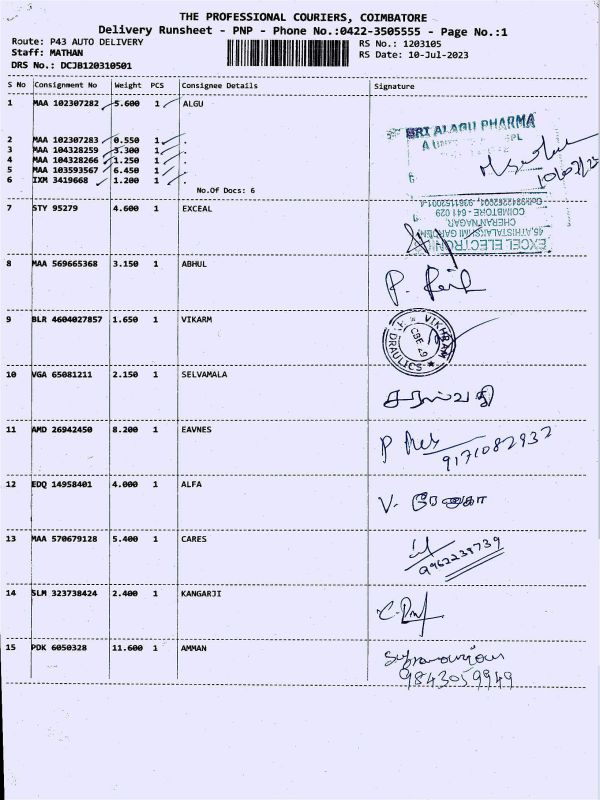 THE PROFESSIONAL COURIERS, COIMBATORE
Delivery Runsheet - PNP - Phone No.:0422-3505555 - Page No.:1
Route: P43 AUTO DELIVERY
RS No.: 1203105
Staff: MATHAN
RS Date: 10-Jul-2023
DRS No.: DCJB120310501
S No Consignment No Weight PCS Consignee Details Signature
1 MAA 102307282 5.600 1 ALGU
SRI ALAGU PHARMA
2 MAA 102307283 0.550 1 .
3 MAA 104328259 3.300 1 .
4 MAA 104328266 1.250 1 .
5 MAA 103593567 6.450 1 .
6 IXM 3419668 1.200 1 .
No.Of Docs: 6
7 STY 95279 4.600 1 EXCEAL
EXCEL ELECTRON
45, ATHISTALAKSHMI GARDEN
CHERAN NAGAR,
COIMBTORE - 641 029
8 MAA 569665368 3.150 1 ABHUL
9 BLR 4604027857 1.650 1 VIKARM
VIKHRAM HYDRAULICS
CBE 29
10 VGA 65081211 2.150 1 SELVAMALA
சரஸ்வதி
11 AMD 26942450 8.200 1 EAVNES
9171082932
12 EDQ 14958401 4.000 1 ALFA
V. ரேணுகா
13 MAA 570679128 5.400 1 CARES
9962239739
14 SLM 323738424 2.400 1 KANGARJI
15 PDK 6050328 11.600 1 AMMAN
9843059949